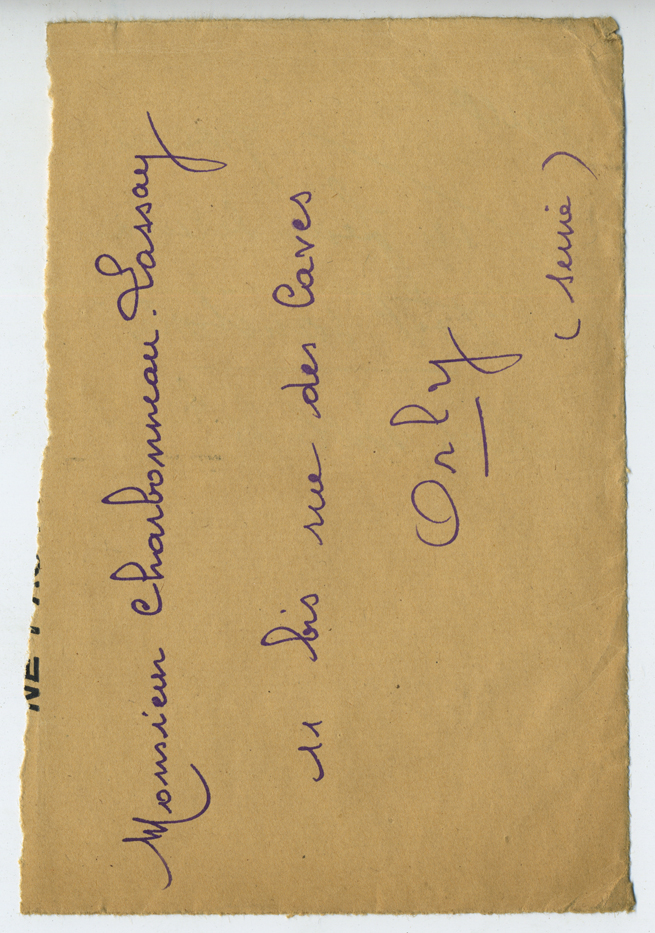 NE
Monsieur Charbonneau. Lassay
11 bis rue des Caves
Orly
(Seine)